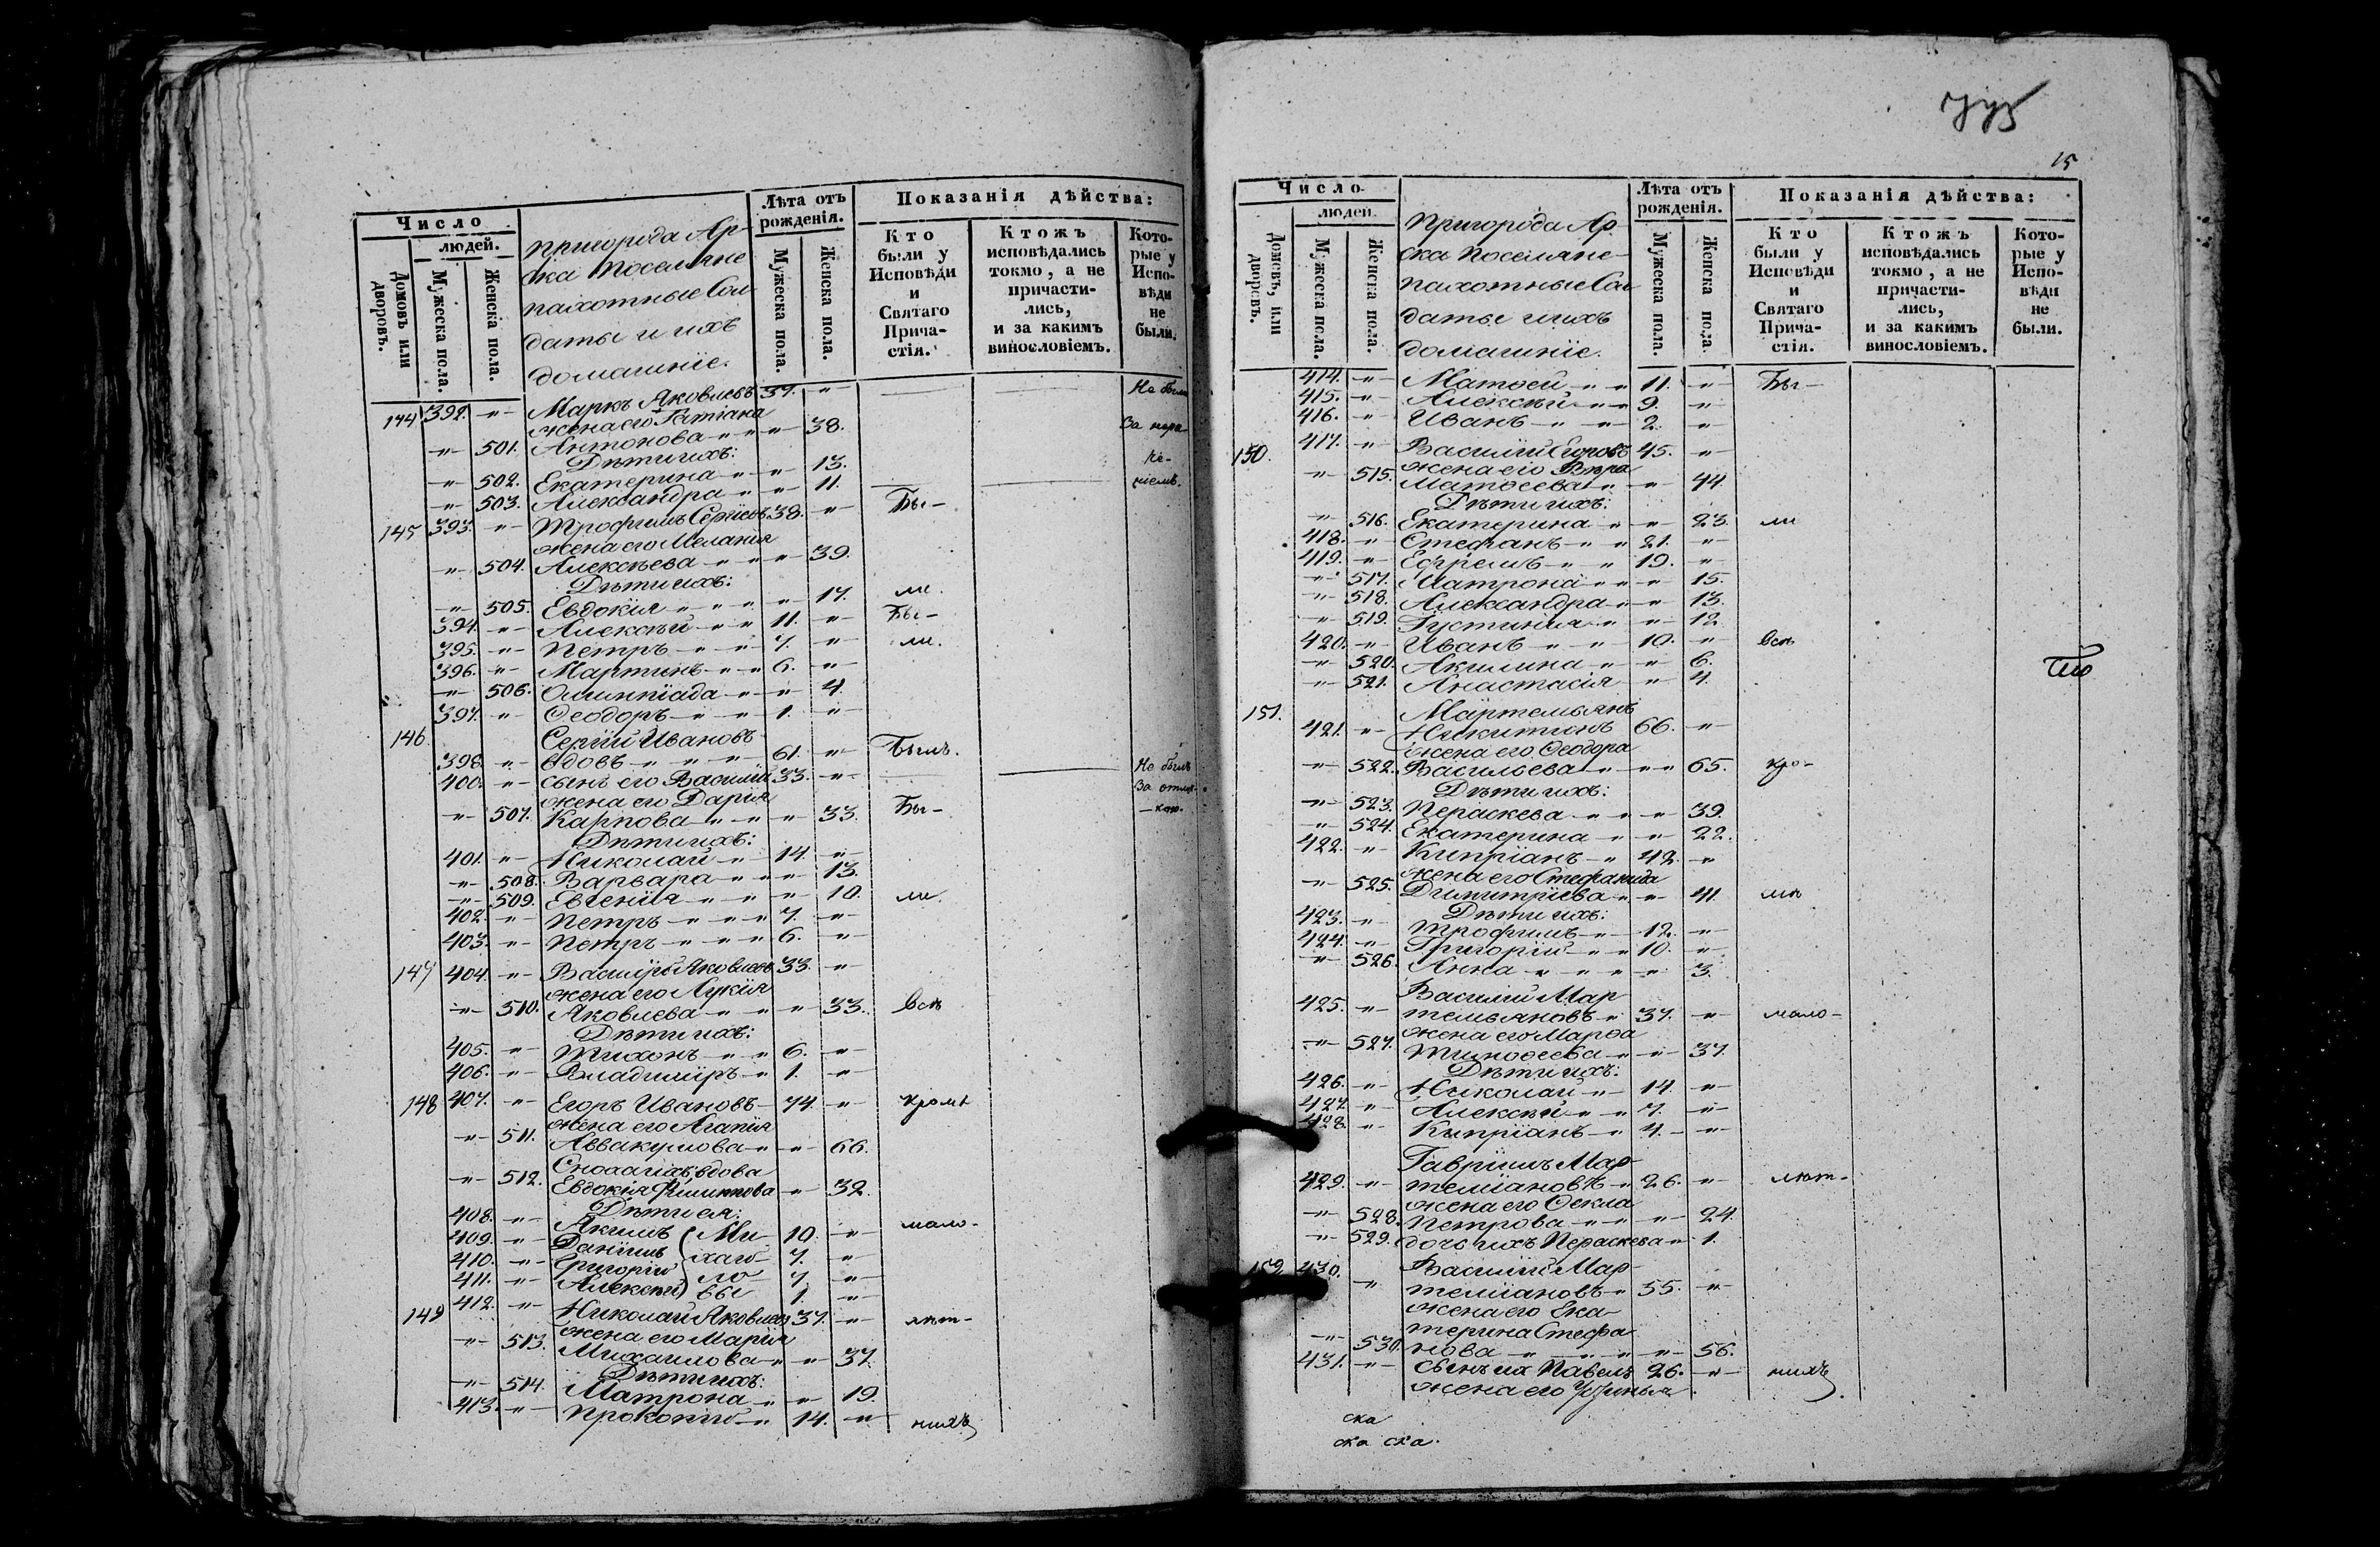 Число
людей.
Домовъ или дворовъ.
Мужеска пола.
Женска пола.
Пригорода Ар-
ска Поселяне
пахотные Сол
даты и ихъ
домашніе.
Лѣта отъ рожденія.
Мужеска пола.
Женска пола.
Показанія дѣйства:
Кто были у Исповѣди и Святаго Прича-стія.
Ктожъ исповѣдались токмо, а не причасти-лись, и за какимъ винословіемъ.
Кото-рые у Испо-вѣди не были.
144 392. -"- Маркъ Яковлевъ 37. -"- Не были
жена его Татіана
-"- 501. Антонова -"- 38. За нера-
Дѣти ихъ:
-"- 502. Екатерина -"- 13. че-
-"- 503. Александра -"- 11. ніемъ.
145 393. -"- Трофимъ Сергѣевъ 38. -"- Бы-
жена его Меланія
-"- 504. Алексѣева -"- 39.
Дѣти ихъ:
-"- 505. Евдокія -"- 17. ли.
394. -"- Алексѣй -"- 11. -"- Бы-
395. -"- Петръ -"- 7. -"- ли.
396. -"- Мартинъ -"- 6. -"-
-"- 506. Олимпіада -"- 4.
397. -"- Ѳеодоръ -"- 1. -"-
146 Сергій Ивановъ
398. -"- вдовъ -"- 61. -"- Былъ.
400. -"- сынъ его Василій 33. -"- Не былъ
жена его Дарія За отлуч-
-"- 507. Карпова -"- 33. Бы- -кою.
Дѣти ихъ:
401. -"- Николай -"- 14. -"-
-"- 508. Варвара -"- 13.
-"- 509. Евгенія -"- 10. ли.
402. -"- Петръ -"- 7. -"-
403. -"- Петръ -"- 6. -"-
147 404. -"- Василій Яковлевъ 33. -"-
жена его Лукія
-"- 510. Яковлева -"- 33. Всѣ
Дѣти ихъ:
405. -"- Тихонъ -"- 6. -"-
406. -"- Владиміръ -"- 1. -"-
148 407. -"- Егоръ Ивановъ 74. -"- кромѣ
жена его Агапія
-"- 511. Аввакумова -"- 66.
Сноха ихъ, вдова
-"- 512. Евдокія Филиппова -"- 32.
Дѣти ея:
408. -"- Якимъ (Ми- 10. -"- мало-
409. -"- Даніилъ хай- 7. -"-
410. -"- Григорій ло- 7. -"-
411. -"- Алексѣй) вы 1. -"-
149 412. -"- Николай Яковлевъ 37. -"- лѣт-
жена его Марія
-"- 513. Михаилова -"- 37.
Дѣти ихъ:
-"- 514. Матрона -"- 19.
413. -"- Прокопій -"- 14. -"- нихъ
15
Число
людей
Домовъ, или дворовъ.
Мужеска пола.
Женска пола.
Пригорода Ар-
ска Поселяне-
пахотные Сол
даты и ихъ
домашніе.
Лѣта отъ рожденія.
Мужеска пола.
Женска пола.
Показанія дѣйства:
Кто были у Исповѣди и Святаго Прича-стія.
Ктожъ исповѣдались токмо, а не причасти-лись, и за какимъ винословіемъ.
Кото-рые у Испо-вѣди не были.
414. -"- Матѳей -"- 11. -"- Бы-
415. -"- Алексѣй -"- 9. -"-
416. -"- Иванъ -"- 2. -"-
150. 417. -"- Василій Егоровъ 45. -"-
жена его Вѣра
-"- 515. Матѳеева -"- 44.
Дѣти ихъ:
-"- 516. Екатерина -"- 23. ли
418. -"- Стефанъ -"- 21. -"-
419. -"- Ефремъ -"- 19. -"-
-"- 517. Матрона -"- 15.
-"- 518. Александра -"- 13.
-"- 519. Іустинія -"- 12.
420. -"- Иванъ -"- 10. -"- Всѣ
-"- 520. Акилина -"- 6.
-"- 521. Анастасія -"- 4.
151. Мартемьянъ
421. -"- Никитинъ 66. -"-
жена его Ѳеодора
-"- 522. Васильева -"- 65. кро-
Дѣти ихъ:
-"- 523. Параскева -"- 39.
-"- 524. Екатерина -"- 22.
422. -"- Кипріанъ -"- 42. -"-
жена его Стефанида
-"- 525. Димитріева -"- 41. мѣ
Дѣти ихъ:
423. -"- Трофимъ -"- 12. -"-
424. -"- Григорій -"- 10. -"-
-"- 526. Анна -"- 3.
Василій Мар
425. -"- темьяновъ -"- 37. -"- мало-
жена его Марѳа
-"- 527. Тимоѳеева -"- 37.
Дѣти ихъ:
426. -"- Николай -"- 14. -"-
427. -"- Алексѣй -"- 7. -"-
428. -"- Кипріанъ -"- 4. -"-
Гавріилъ Мар-
429. -"- теміановъ -"- 26. -"- лѣт-
жена его Ѳекла
-"- 528. Петрова -"- 24.
-"- 529. дочь ихъ Параскева -"- 1.
152 430. Василій Мар-
-"- теміановъ -"- 55. -"-
жена его Ека-
терина Стефа
-"- 530. нова -"- 56.
431. -"- сынъ их Павелъ 26. -"- нихъ
жена его
ска
ска ска.